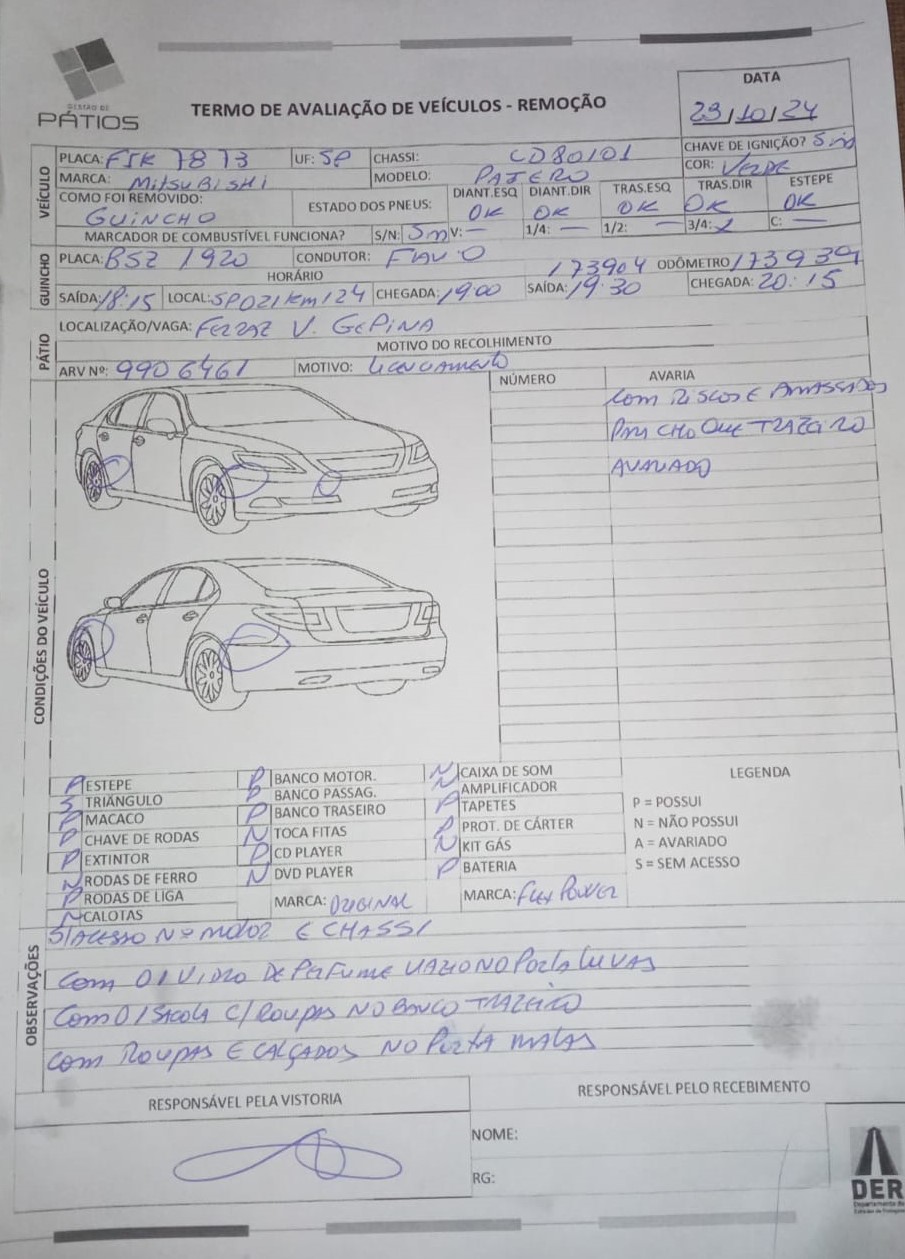 GESTÃO DE
PÁTIOS
TERMO DE AVALIAÇÃO DE VEÍCULOS - REMOÇÃO
DATA
23/10/24
VEÍCULO
PLACA: FSK 7873 UF: SP CHASSI: CD80101 CHAVE DE IGNIÇÃO? Sim
MARCA: MitsuBishi MODELO: PAJERO COR: VERDE
COMO FOI REMOVIDO: GUINCHO ESTADO DOS PNEUS: DIANT.ESQ OK DIANT.DIR OK TRAS.ESQ OK TRAS.DIR OK ESTEPE OK
MARCADOR DE COMBUSTÍVEL FUNCIONA? S/N: Sim V: — 1/4: — 1/2: — 3/4: C: —
GUINCHO
PLACA: BSZ 1920 CONDUTOR: FLAVIO 173904 ODÔMETRO 173939
HORÁRIO
SAÍDA: 18:15 LOCAL: SP021 Km 124 CHEGADA: 1900 SAÍDA: 19:30 CHEGADA: 20:15
PÁTIO
LOCALIZAÇÃO/VAGA: FERRAZ V. GEPINA
MOTIVO DO RECOLHIMENTO
ARV Nº: 9906461 MOTIVO: Licenciamento
CONDIÇÕES DO VEÍCULO
NÚMERO AVARIA
Com RISCOS E AMASSADOS
PARACHOQUE TRAZEIRO
AVARIADO
ESTEPE
S TRIÂNGULO
P MACACO
P CHAVE DE RODAS
P EXTINTOR
N RODAS DE FERRO
P RODAS DE LIGA
N CALOTAS
P BANCO MOTOR.
P BANCO PASSAG.
P BANCO TRASEIRO
N TOCA FITAS
P CD PLAYER
N DVD PLAYER
MARCA: ORIGINAL
N CAIXA DE SOM
N AMPLIFICADOR
P TAPETES
P PROT. DE CÁRTER
N KIT GÁS
P BATERIA
MARCA: Flex Power
LEGENDA
P = POSSUI
N = NÃO POSSUI
A = AVARIADO
S = SEM ACESSO
OBSERVAÇÕES
S/ACESSO Nº MOTOR E CHASSI
Com 01 VIDRO DE PERFUME VAZIO NO PORTA LUVAS
Com 01 SACOLA C/ ROUPAS NO BANCO TRAZEIRO
Com ROUPAS E CALÇADOS NO PORTA MALAS
RESPONSÁVEL PELA VISTORIA
RESPONSÁVEL PELO RECEBIMENTO
NOME:
RG:
DER